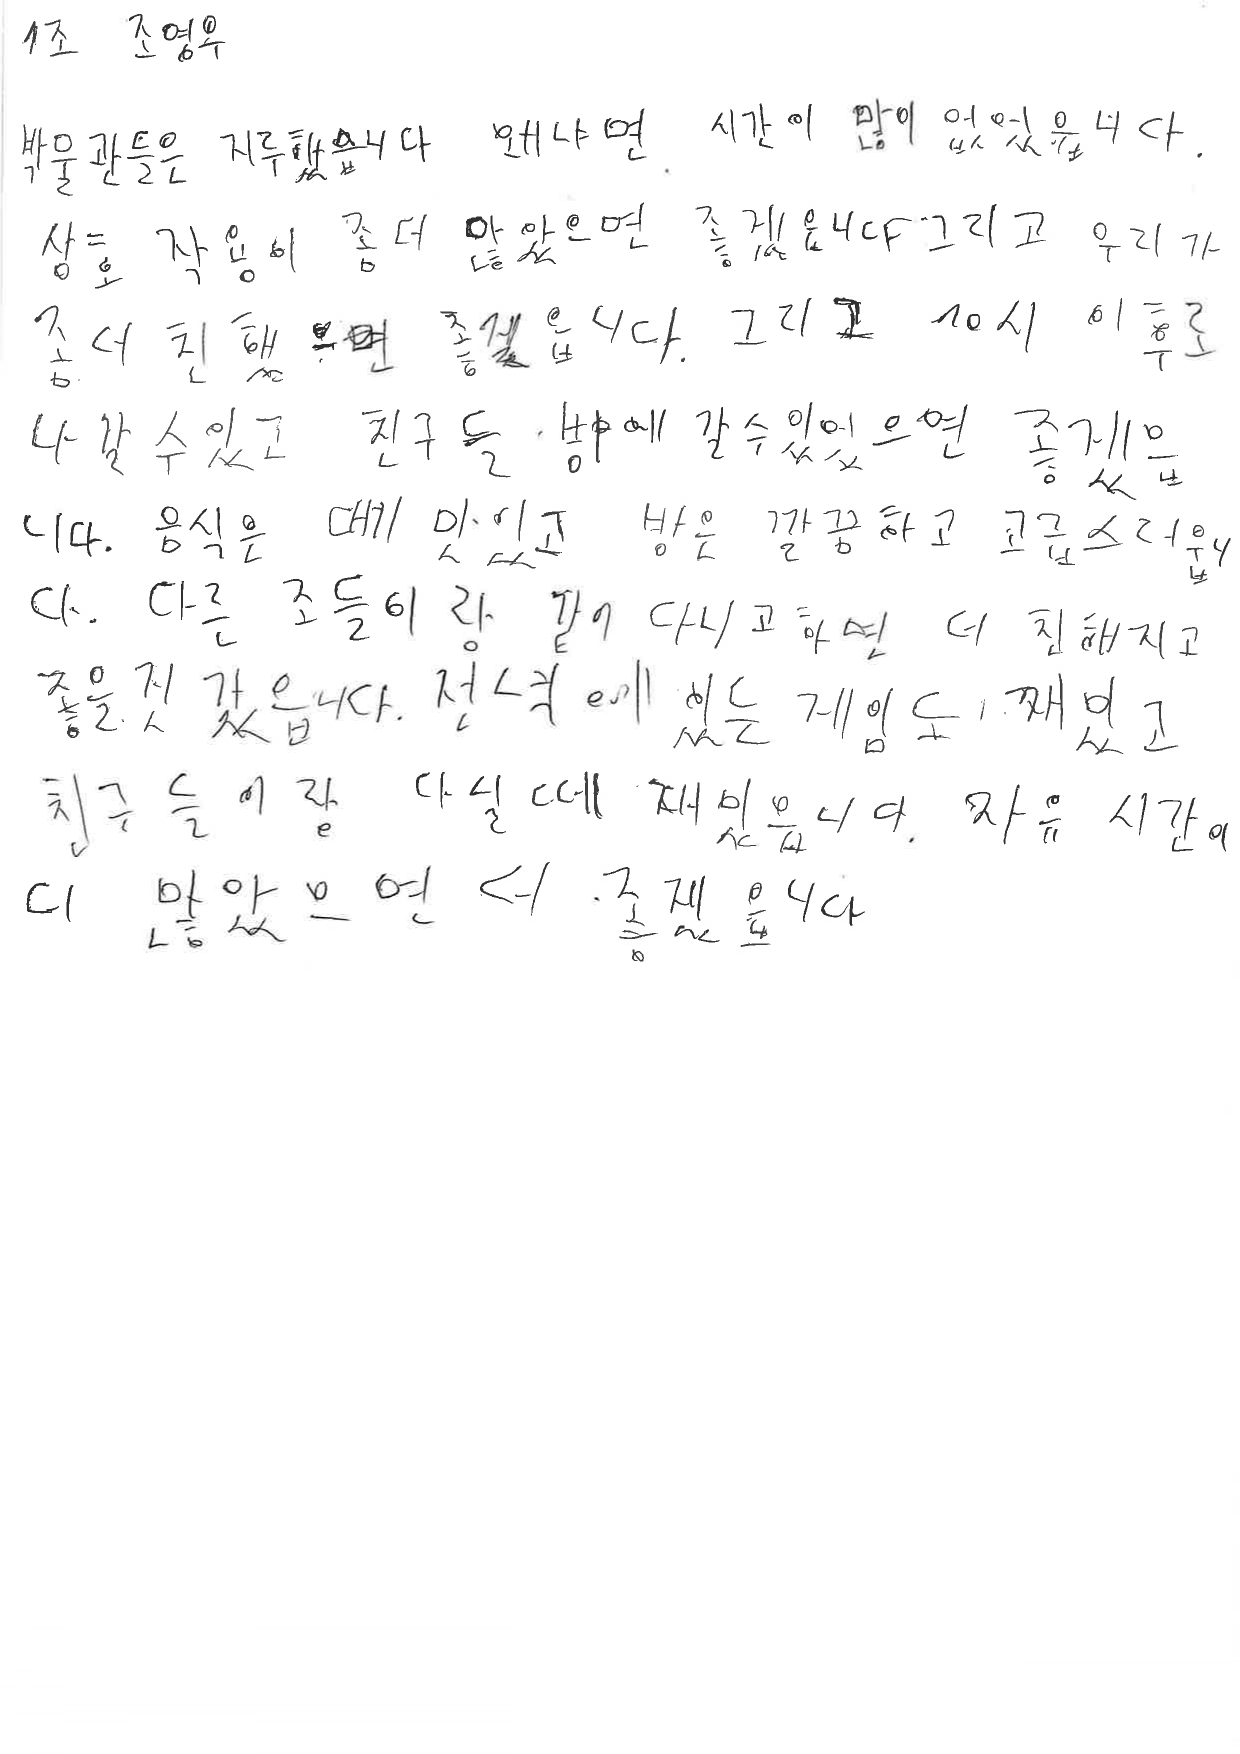 1조 조영우
박물관들은 지루했습니다 왜냐면 시간이 많이 없었읍니다.
상호 작용이 좀더 많았으면 좋겠읍니다 그리고 우리가
좀더 친했으면 좋겠읍니다. 그리고 10시 이후로
나갈수있고 친구들 방에 갈수있었으면 좋겠읍
니다. 음식은 대게 맛있고 방은 깔끔하고 고급스러웁니
다. 다른 조들이랑 같이 다니고하면 더 친해지고
좋을것 같읍니다. 전녁에 있는 게임도 째밌고
친구들이랑 다닐때 재밌읍니다. 자유 시간이
더 많았으면 더 좋겠읍니다